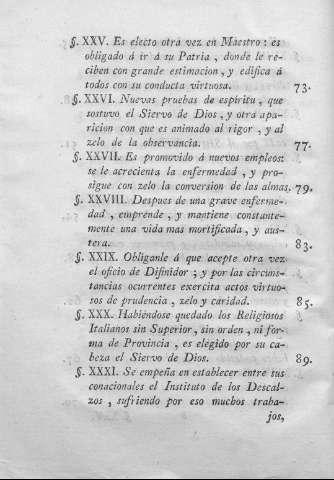 §. XXV. Es electo otra vez en Maestro: es
obligado á ir á su Patria, donde le re-
ciben con grande estimacion, y edifica á
todos con su conducta virtuosa. 73.
§. XXVI. Nuevas pruebas de espíritu, que
sostuvo el Siervo de Dios, y otra apa-
ricion con que es animado al rigor, y al
zelo de la observancia. 77.
§. XXVII. Es promovido á nuevos empleos:
se le acrecienta la enfermedad, y pro-
sigue con zelo la conversion de las almas. 79.
§. XXVIII. Despues de una grave enferme-
dad, emprende, y mantiene constante-
mente una vida mas mortificada, y aus-
tera. 83.
§. XXIX. Obliganle á que acepte otra vez
el oficio de Difinidor; y por las circuns-
tancias ocurrentes exercita actos virtuo-
sos de prudencia, zelo y caridad. 85.
§. XXX. Habiéndose quedado los Religiosos
Italianos sin Superior, sin orden, ni for-
ma de Provincia, es elegido por su ca-
beza el Siervo de Dios. 89.
§. XXXI. Se empeña en establecer entre sus
conacionales el Instituto de los Descal-
zos, sufriendo por eso muchos traba-
jos,